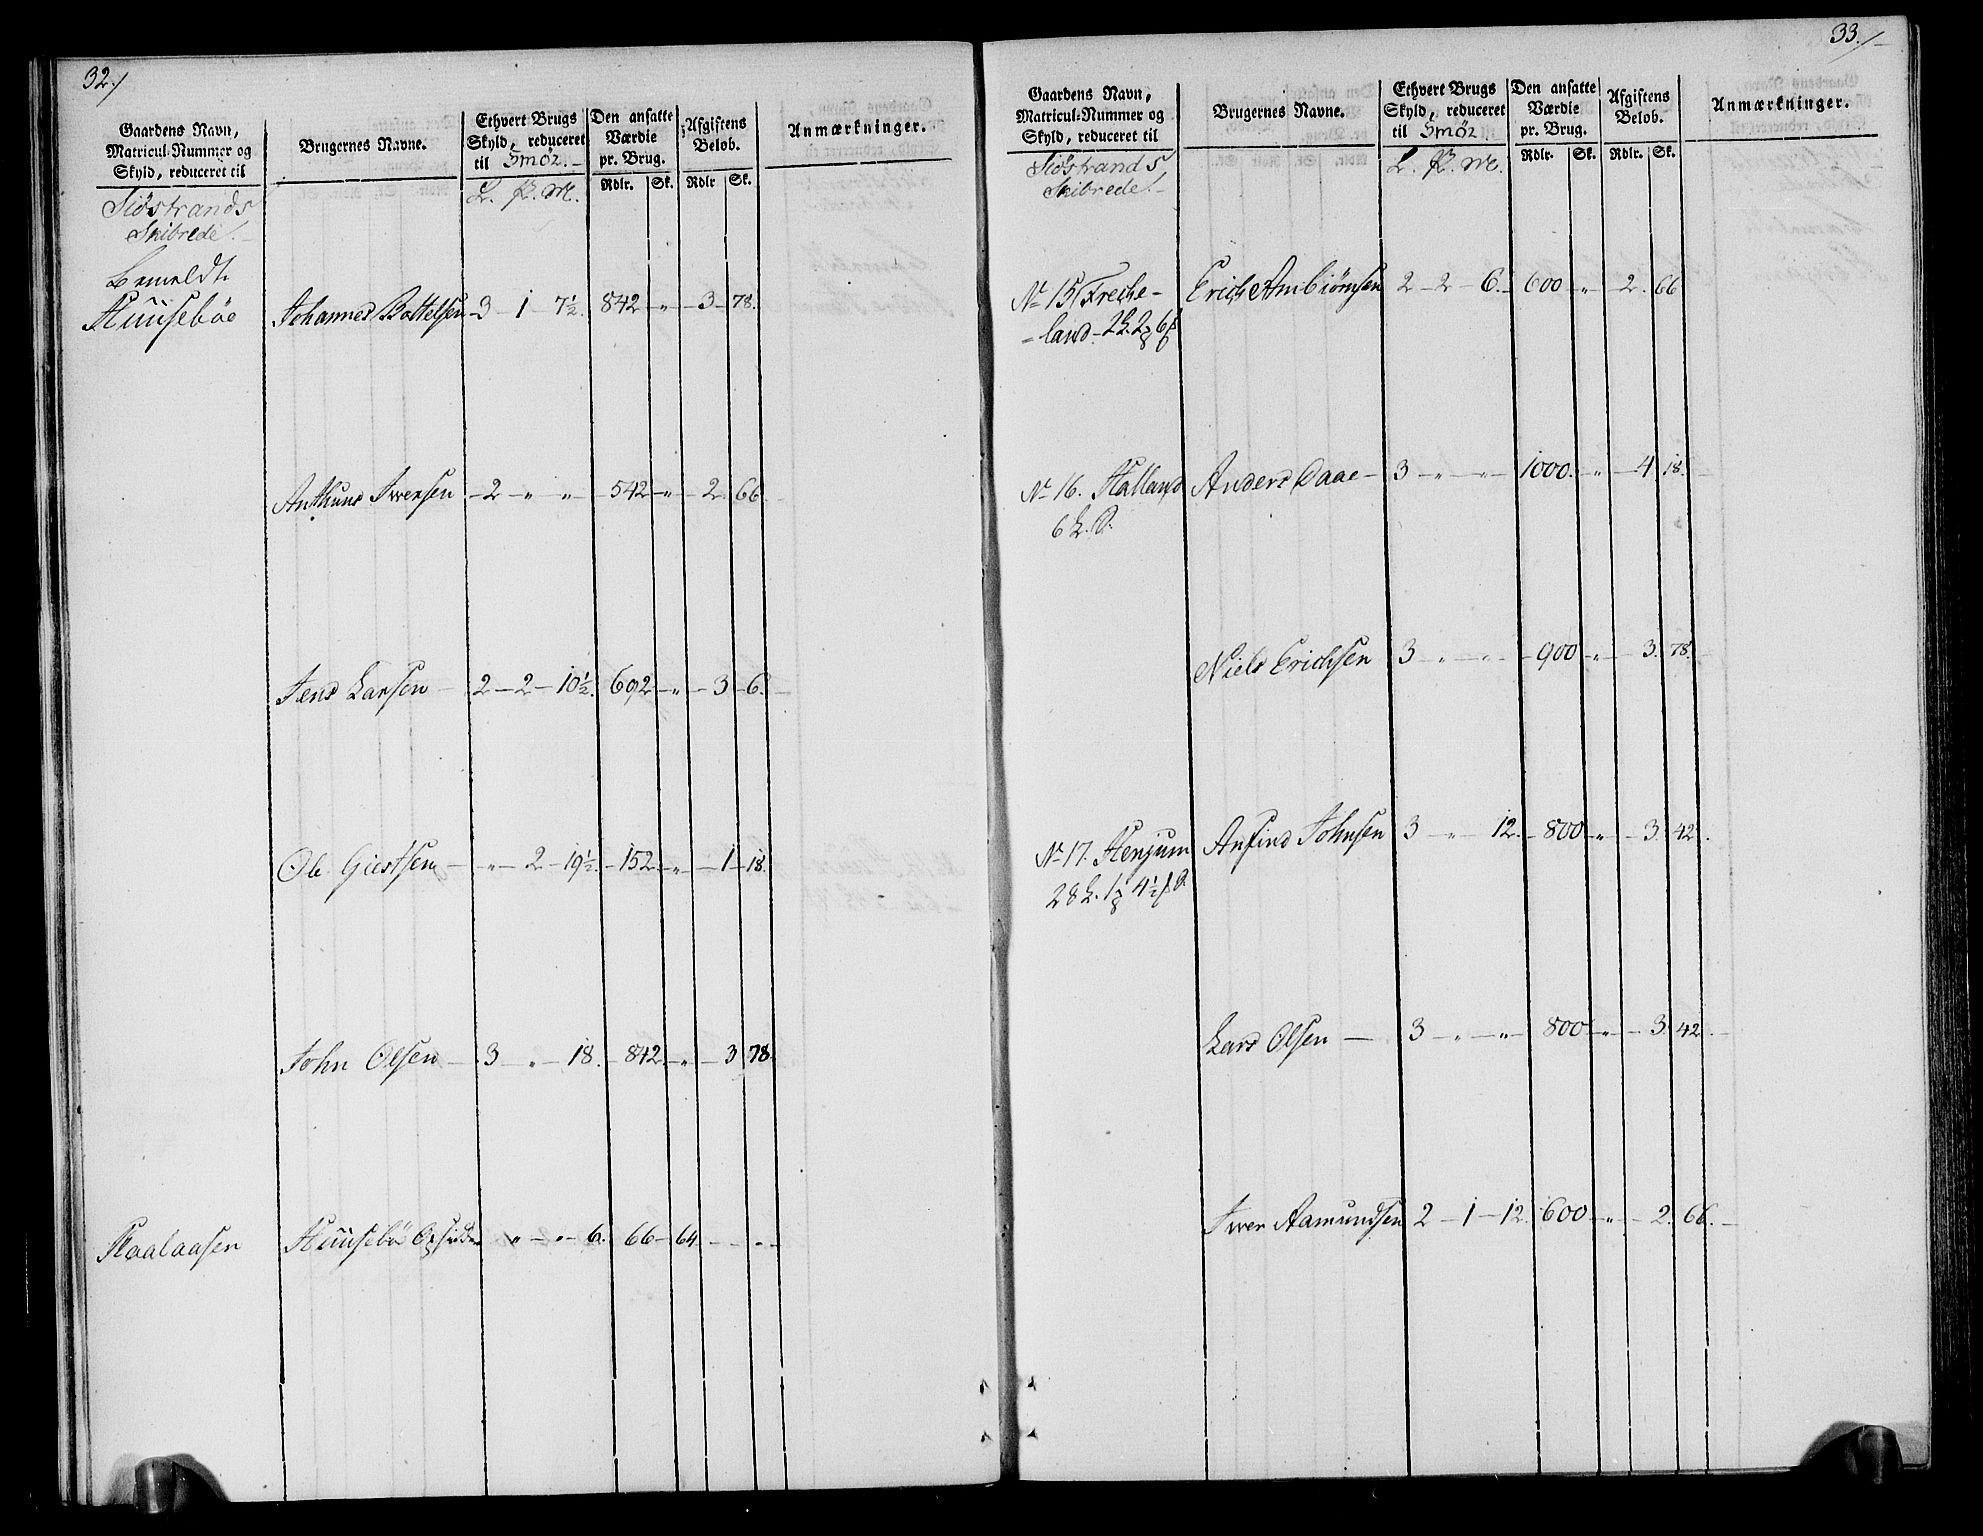 32./
Gaardens Navn,
Matricul-Nummer og
Skyld, reduceret til
Brugernes Navne.
Ethvert Brugs
Skyld, reduceret
til Smör.
Den ansatte
Værdie
pr. Brug.
Afgiftens
Beløb.
Anmærkninger.
Rdlr. Sk. Rdlr Sk.
Siöstrands
Skibrede
Bemeldte
Huusebøe Johannes Bottelsen 3 1 7½. 842 " 3 78.
Anthund Iwersen 2 " " 542 " 2. 66.
Jens Larsen 2 2 10½. 692 " 3 6.
Ole Giestsen " 2 19½. 152 " 1 18.
John Olsen 3 " 18. 842 " 3 78.
Skaalaasen Huusebøe Opsidder " " 6. 66 64
33./
Gaardens Navn,
Matricul-Nummer og
Skyld, reduceret til
Brugernes Navne.
Ethvert Brugs
Skyld, reduceret
til Smör
Den ansatte
Værdie
pr. Brug.
Afgiftens
Beløb.
Anmærkninger.
Rdlr. Sk. Rdlr. Sk.
Siöstrands
Skibrede
No 15 Freche- Erich Ambiörnsen 2 2 6. 600 " 2. 66
=land
No 16. Halland Anders Daae 3 " " 1000. " 4 18.
Niels Erichsen 3 " " 900 " 3. 78.
No 17. Henjum Anfind Johnsen 3 " 12. 800 " 3. 42.
Lars Olsen 3 " " 800 " 3. 42.
Iwer Aamundsen 2 1 12. 600 " 2. 66.